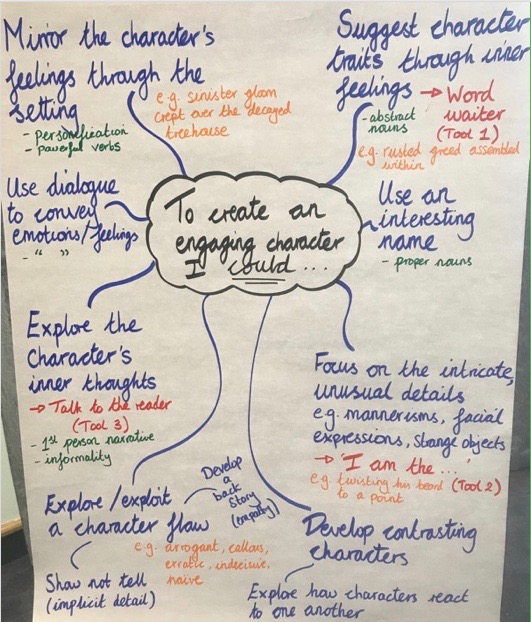 Mirror the character's
feelings through the
setting
- personification
- powerful verbs
e.g. sinister gloom
crept over the decayed
treehouse
Suggest character
traits through inner
feelings → Word
waiter
(Tool 1)
- abstract
nouns
e.g. rusted greed assembled
within
Use dialogue
to convey
emotions/feelings
- " "
To create an
engaging character
I could...
Use an
interesting
name
- proper nouns
Explore the
character's
inner thoughts
→ Talk to the reader
(Tool 3)
- 1st person narrative
- informality
Focus on the intricate,
unusual details
e.g. mannerisms, facial
expressions, strange objects
→ 'I am the ...'
(Tool 2)
e.g. twisting his beard
to a point
Explore/exploit
a character flaw
e.g. arrogant, callous,
erratic, indecisive,
naive
Develop
a
back
story
(empathy)
Show not tell
(implicit detail)
Develop contrasting
characters
Explore how characters react
to one another